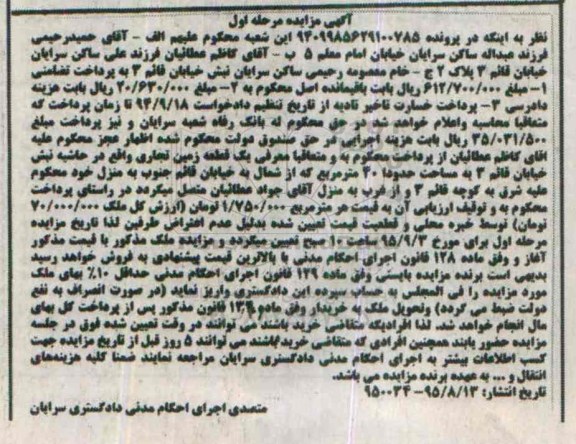 آگهی مزایده مرحله اول
نظر به اینکه در پرونده ۹۴۰۹۹۸۵۶۲۹۱۰۰۷۸۵ این شعبه محکوم علیهم الف - آقای حمیدرحیمی
فرزند عبداله ساکن سرایان خیابان امام معلم ۵ ب - آقای کاظم عطائیان فرزند علی ساکن سرایان
خیابان قائم ۳ پلاک ۲ ج - خام معصومه رحیمی ساکن سرایان نبش خیابان قائم ۳ به پرداخت تضامنی
۱- مبلغ ۶۱۲/۷۰۰/۰۰۰ ریال بابت باقیمانده اصل محکوم به ۲- مبلغ ۲۰/۶۳۰/۰۰۰ ریال بابت هزینه
دادرسی ۳- پرداخت خسارت تاخیر تادیه از تاریخ تنظیم دادخواست ۹۴/۹/۱۸ تا زمان پرداخت که
متعاقبا محاسبه واعلام خواهد شد در حق محکوم له بانک رفاه شعبه سرایان و نیز پرداخت مبلغ
۳۵/۰۳۱/۵۰۰ ریال بابت هزینه اجرایی در حق صندوق دولت محکوم شده اظهار عجز محکوم علیه
اقای کاظم عطائیان از پرداخت محکوم به و متعاقبا معرفی یک قطعه زمین تجاری واقع در حاشیه نبش
خیابان قائم ۳ به مساحت حدودا ۴۰ مترمربع که از شمال به خیابان قائم جنوب به منزل خود محکوم
علیه شرق به کوچه قائم ۳ و از غرب به منزل آقای جواد عطائیان متصل میگردد در راستای پرداخت
محکوم به و توقیف ارزیابی آن به قیمت هر مترمربع ۱/۷۵۰/۰۰۰ تومان (ارزش کل ملک ۷۰/۰۰۰/۰۰۰
تومان) توسط خبره محلی و قطعیت قیمت تعیین شده بدلیل عدم اعتراض طرفین لذا تاریخ مزایده
مرحله اول برای مورخ ۹۵/۹/۳ ساعت ۱۰ صبح تعیین میگردد و مزایده ملک مذکور با قیمت مذکور
آغاز و وفق ماده ۱۲۸ قانون اجرای احکام مدنی با بالاترین قیمت پیشنهادی به فروش خواهد رسید
بدیهی است برنده مزایده بایستی وفق ماده ۱۲۹ قانون اجرای احکام مدنی حداقل ۱۰٪ بهای ملک
مورد مزایده را فی المجلس به حساب سپرده این دادگستری واریز نماید (در صورت انصراف به نفع
دولت ضبط می گردد) وتحویل ملک به خریدار وفق ماده ۱۲۹ قانون مذکور پس از پرداخت کل بهای
مال انجام خواهد شد. لذا افرادیکه متقاضی خرید باشند می توانند در وقت تعیین شده فوق در جلسه
مزایده حضور یابند همچنین افرادی که متقاضی خرید باشند می توانند ۵ روز قبل از تاریخ مزایده جهت
کسب اطلاعات بیشتر به اجرای احکام مدنی دادگستری سرایان مراجعه نمایند ضمنا کلیه هزینه‌های
انتقال و ... به عهده برنده مزایده می باشد.
تاریخ انتشار: ۹۵/۸/۱۳- ۹۵۰۰۳۴
متصدی اجرای احکام مدنی دادگستری سرایان